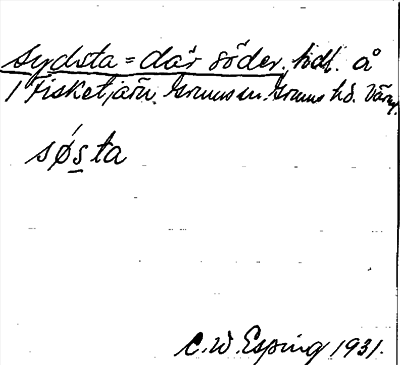 sydsta = där söder, hdl. å
1 Fisketjärn. Grums sn. Grums hd. Värml.
søsta
C. W. Esping 1931.